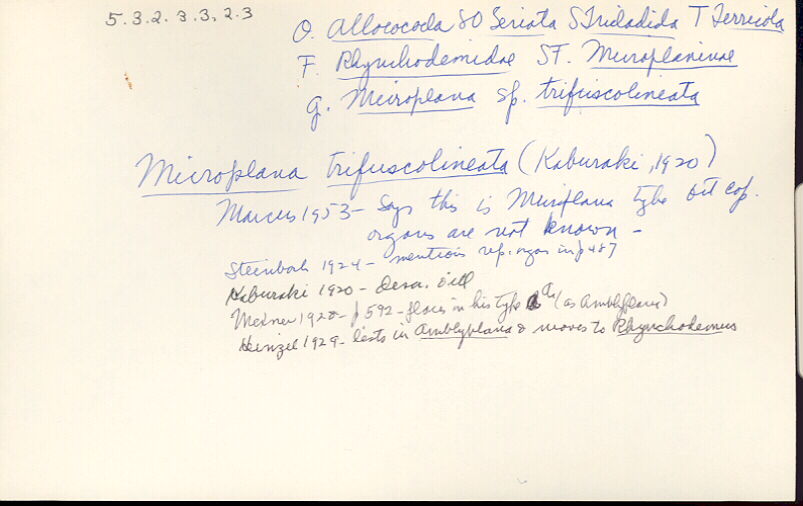 5.3.2.3.3.2.3
O. Allococoela SO Seriata S Tricladida T Terricola
F. Rhynchodemidae SF. Microplaninae
g. Microplana sp. trifuscolineata
Microplana trifuscolineata (Kaburaki, 1920)
Marcus 1953 - Says this is Microplana type but cop.
organs are not known -
Steinbock 1924 - mentions rep. organ in p 487
Kaburaki 1920 - Desc. ill
Meixner 1928 - p 592 - places in his type (as Amblyplana)
Heinzel 1929 - lists in Amblyplana & moves to Rhynchodemus